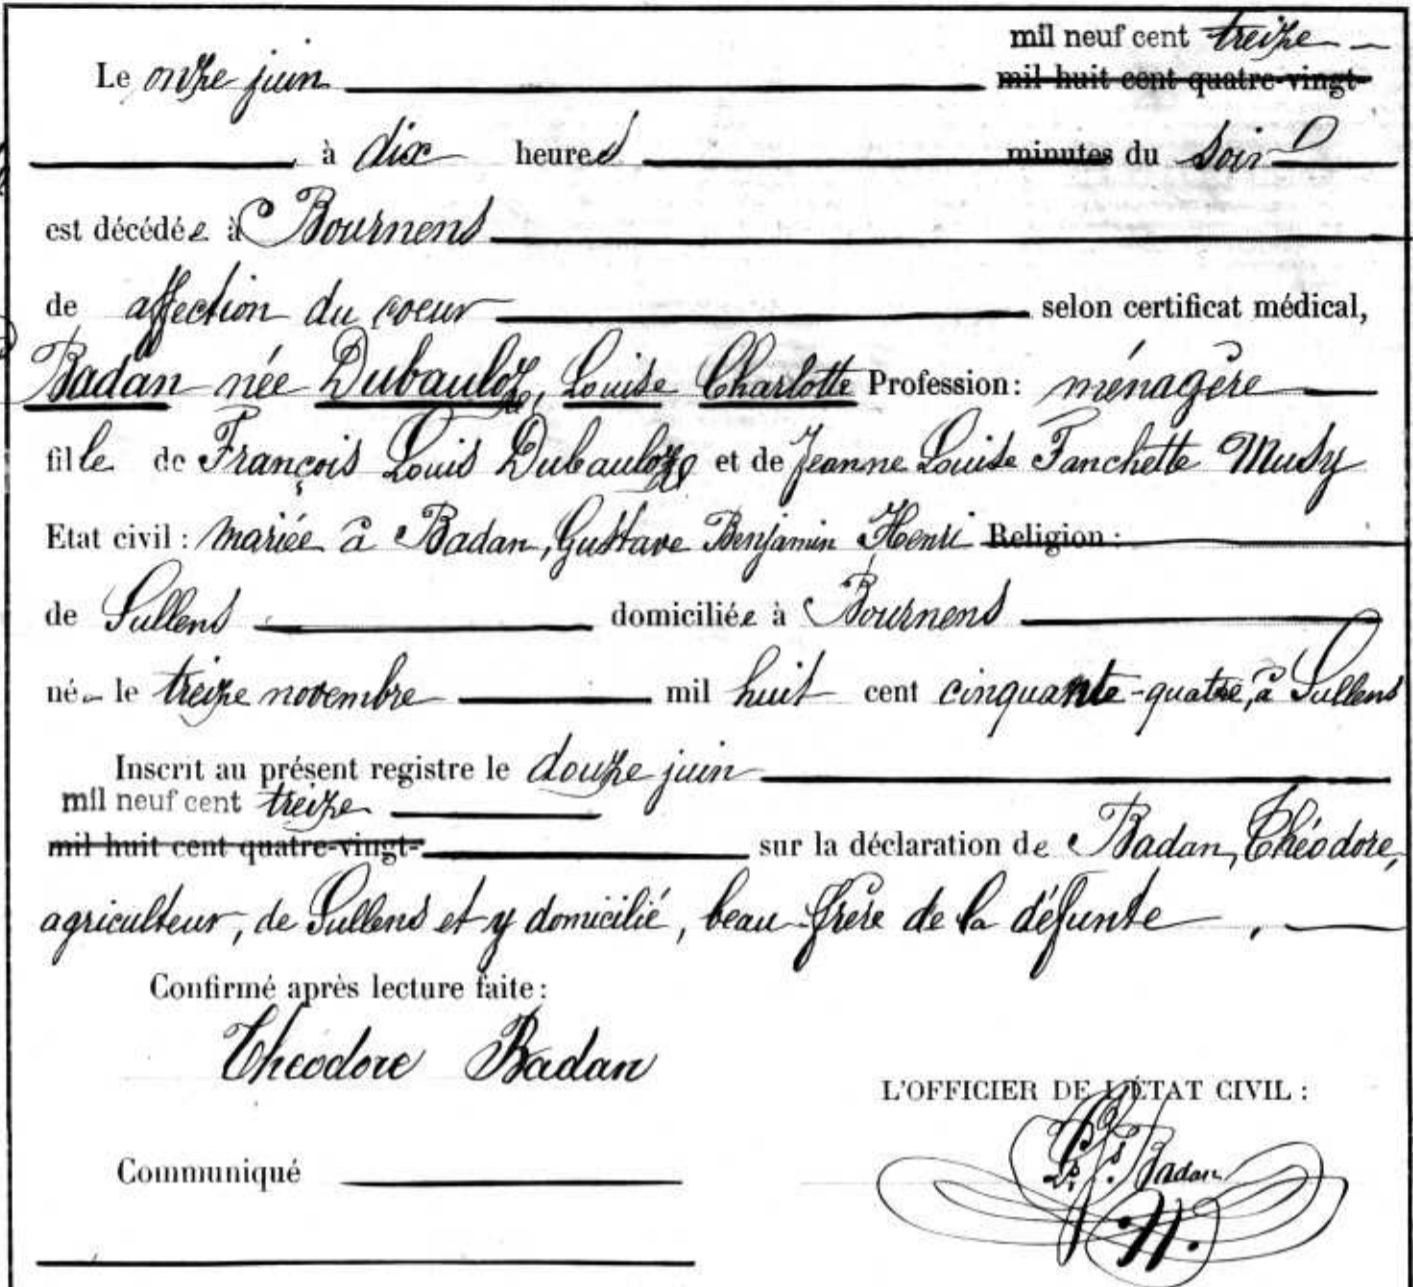 mil neuf cent treize
Le onze juin mil huit cent quatre-vingt-
à dix heures minutes du soir
est décédée à Bournens
de affection du coeur selon certificat médical,
Badan née Dubauloz, Louise Charlotte Profession: ménagère
fille de François Louis Dubauloz et de Jeanne Louise Fanchette Musy
Etat civil : mariée à Badan, Gustave Benjamin Henri Religion :
de Sullens domiciliée à Bournens
né le treize novembre mil huit cent cinquante-quatre, à Sullens
Inscrit au présent registre le douze juin
mil neuf cent treize
mil huit cent quatre-vingt- sur la déclaration de Badan, Théodore,
agriculteur, de Sullens et y domicilié, beau-frère de la défunte.
Confirmé après lecture faite :
Theodore Badan
L'OFFICIER DE L'ÉTAT CIVIL :
Badan
Communiqué